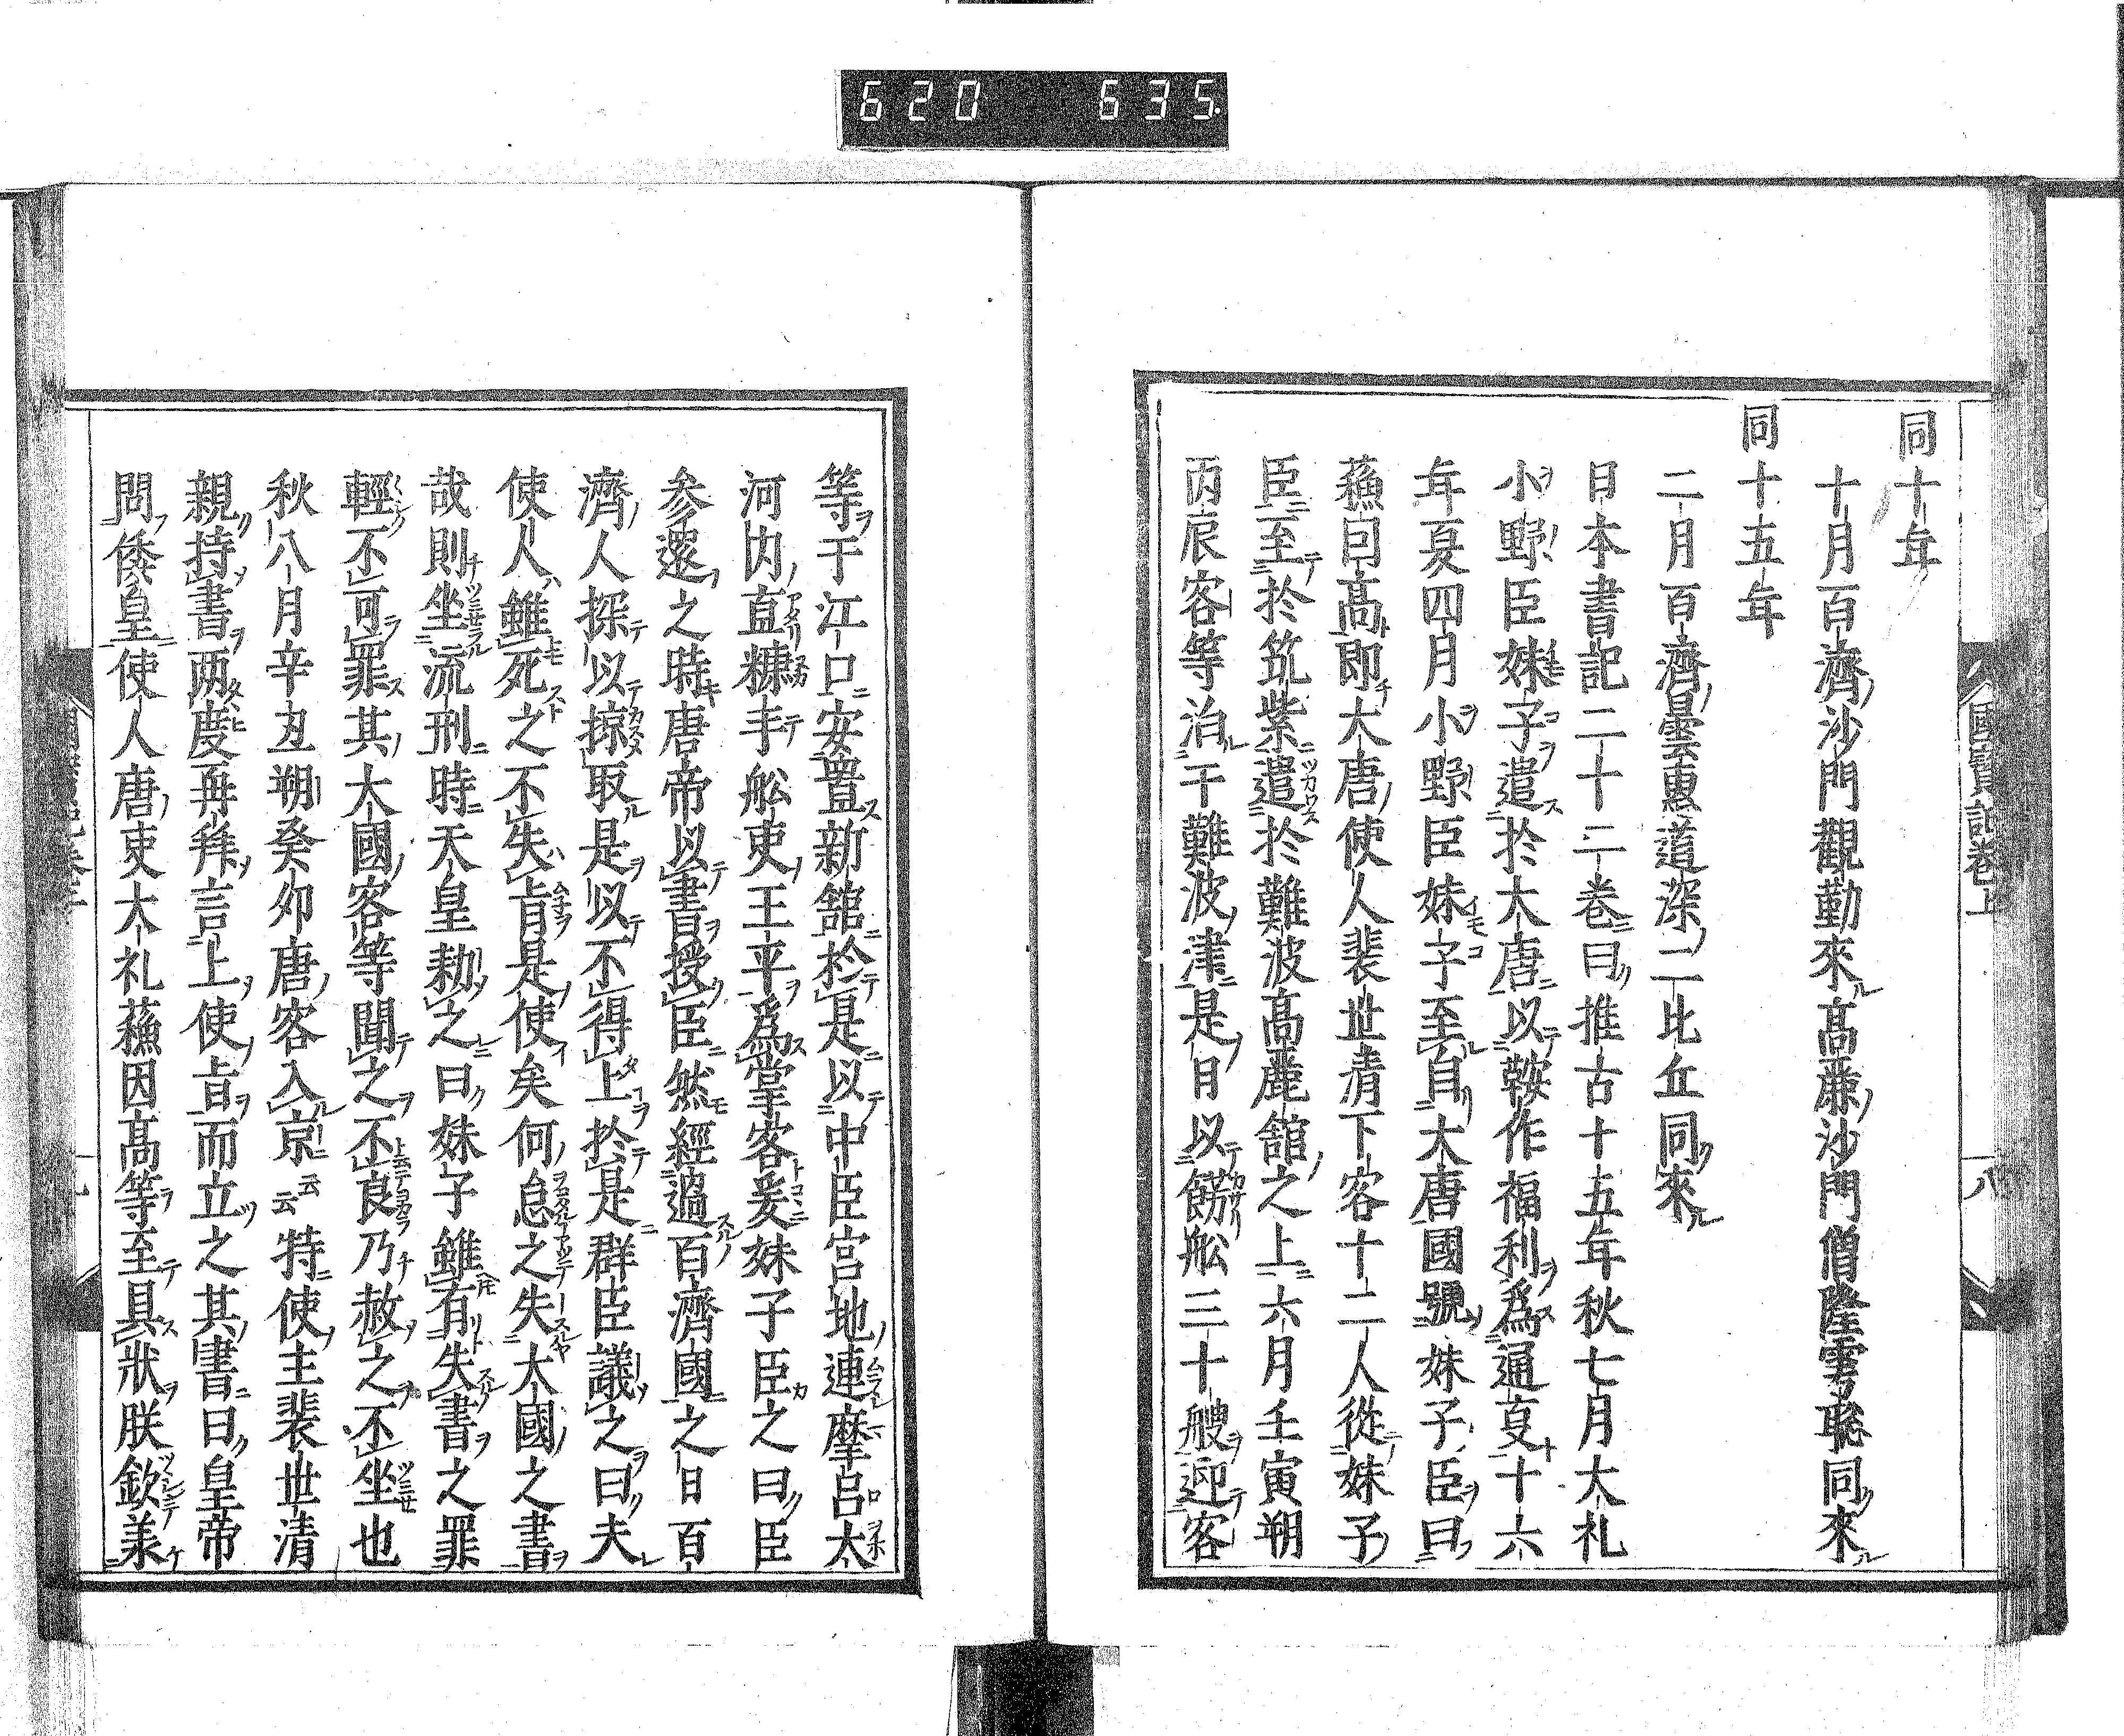 620 635
國寶記卷上
八
同十年
十月百濟沙門觀勤來髙麗沙門僧隆雲聡同來
同十五年
二月百濟曇惠道深二比丘同來
日本書記二十二卷曰推古十五年秋七月大礼
小野臣妹子遣於大唐以鞍作福利爲通叓十六
年夏四月小野臣妹子至自大唐國號妹子臣曰
蘓曰髙即大唐使人裴世清下客十二人從妹子
臣至於筑紫遣於難波髙麗舘之上六月壬寅朔
丙辰客等泊于難波津是月以餝舩三十艘迎客
等于江口安置新舘於是以中臣宮地連摩呂太
河內直糠手舩吏王平爲掌客爰妹子臣之曰臣
参還之時唐帝以書授臣然經過百濟國之日百
濟人探以掠取是以不得上於是群臣議之曰夫
使人雖死之不失旨是使矣何怠之失大國之書
哉則坐流刑時天皇勑之曰妹子雖有失書之罪
輕不可罪其大國客等聞之不良乃赦之不坐也
秋八月辛丑朔癸夘唐客入京云云特使主裴世清
親持書两度再拜言上使旨而立之其書曰皇帝
問倭皇使人唐吏大礼蘓因髙等至具狀朕欽美